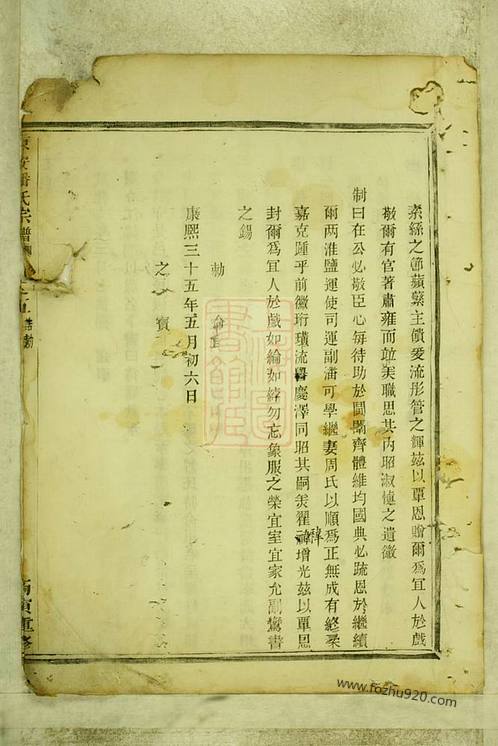 素絲之節蘋蘩主饋爰流彤管之輝茲以覃恩贈爾為宜人於戲
敬爾有官著肅雍而並美職思其內昭淑慎之遺徽
制曰在公必敬臣心每待助於閨闈齊體維均國典必疏恩於繼續
爾兩淮鹽運使司運副潘可學繼妻周氏以順為正無成有終柔
嘉克踵乎前徽珩璜流慶澤同昭其嗣美翟褘增光茲以覃恩
封爾為宜人於戲如綸如綍勿忘象服之榮宜室宜家允副鸞書
之錫
勅命
康熙三十五年五月初六日
之寶
潘氏宗譜
重修
www.fozhu920.com